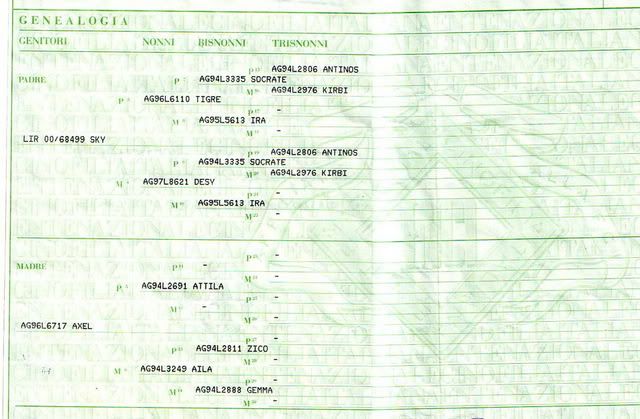 GENEALOGIA
GENITORI NONNI BISNONNI TRISNONNI
P AG94L2806 ANTINOS
PADRE P AG94L3335 SOCRATE
M AG94L2976 KIRBI
P AG96L6110 TIGRE
P -
M AG95L5613 IRA
M -
LIR 00/68499 SKY
P AG94L2806 ANTINOS
P AG94L3335 SOCRATE
M AG94L2976 KIRBI
M AG97L8621 DESY
P -
M AG95L5613 IRA
M -
P -
MADRE P -
M -
P AG94L2691 ATTILA
P -
M -
M -
AG96L6717 AXEL
P -
P AG94L2811 ZICO
M -
M AG94L3249 AILA
P -
M AG94L2888 GEMMA
M -